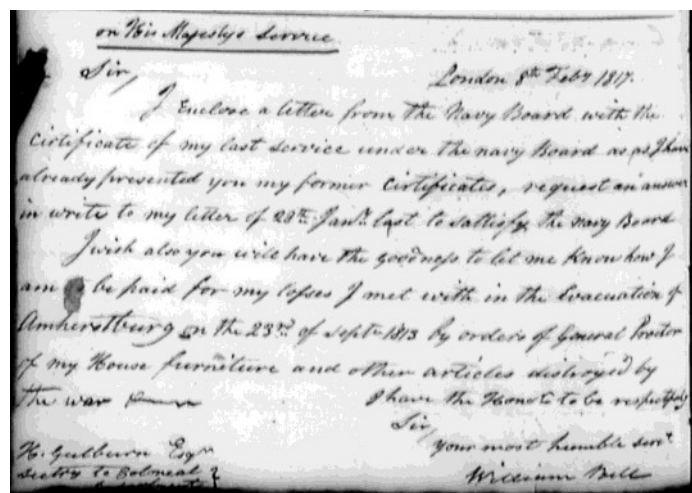 on His Majestys Service
Sir, London 8th Feby 1817.
I Enclose a letter from the Navy Board with the
Cirtificate of my last service under the navy Board as as I have
already presented you my former Cirtificates, request an answer
in write to my letter of 28th Jany last to sattisfy the navy Board
I wish also you will have the goodness to let me Know how I
am to be paid for my losses I met with in the Evacuation of
Amherstburg on the 23rd of Septr 1813 by orders of General Procter
of my House furniture and other articles distroyed by
the war I have the Honor to be respectfully
Sir,
your most humble servt
H. Gulburn Esqr
Sectry to Coloneal
William Bell